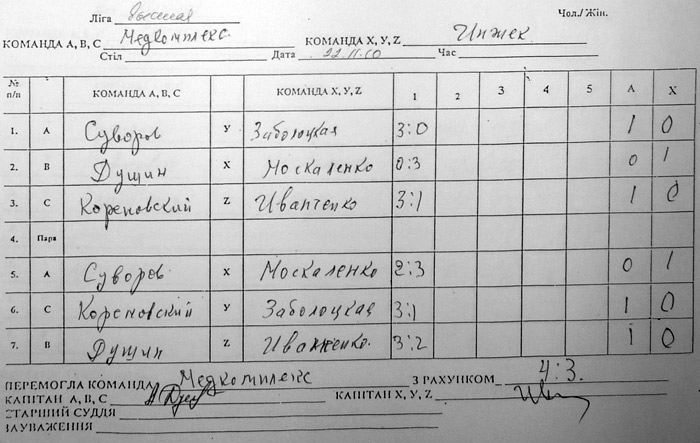 Ліга Высшая Чол./Жін.
КОМАНДА А, В, С Медкомплекс. КОМАНДА X, У, Z Инжек
Стіл Дата 22.11.10 Час
№ п/п КОМАНДА А, В, С КОМАНДА X, У, Z 1 2 3 4 5 А X
1. А Суворов У Заболоцкая 3:0 1 0
2. В Душин X Москаленко 0:3 0 1
3. С Кореновский Z Иванченко 3:1 1 0
4. Пара
5. А Суворов X Москаленко 2:3 0 1
6. С Кореновский У Заболоцкая 3:1 1 0
7. В Душин Z Иванченко. 3:2 1 0
ПЕРЕМОГЛА КОМАНДА Медкомплекс З РАХУНКОМ 4:3.
КАПІТАН А, В, С КАПІТАН X, У, Z
СТАРШИЙ СУДДЯ
ЗАУВАЖЕННЯ